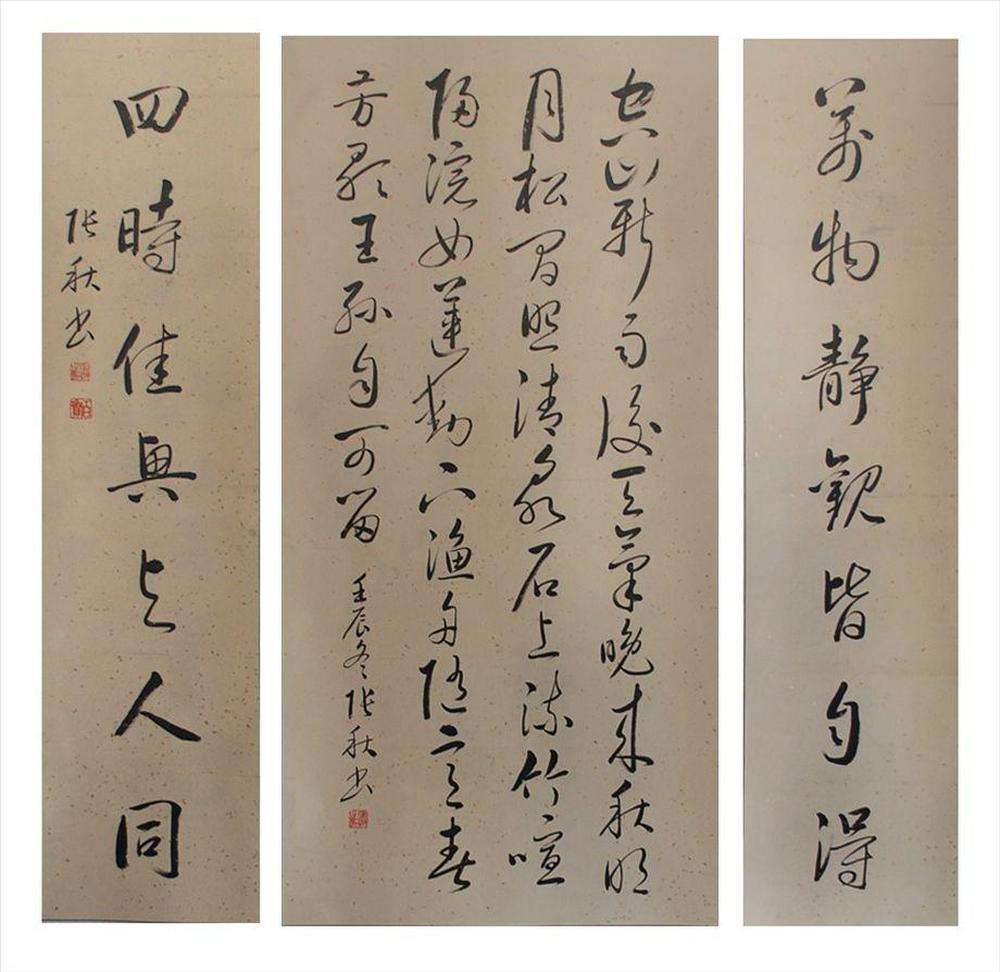 萬物静觀皆自得
空山新雨後天氣晚來秋明
月松間照清泉石上流竹喧
歸浣女蓮動下漁舟隨意春
芳歇王孫自可留 壬辰冬張秋书
四時佳興与人同
張秋书